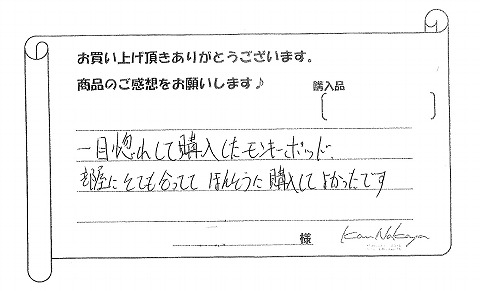 お買い上げ頂きありがとうございます。
商品のご感想をお願いします♪
購入品
一目惚れして購入したモンキーポッド、
部屋にとても合ってて ほんとうに購入してよかったです
様
Kan Nakaya